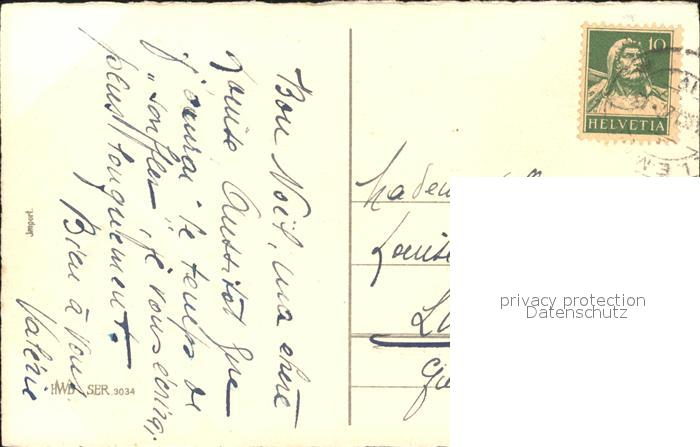 Bon Noël, ma chère
Louise Aussitôt que
j'aurai le temps de
"souffler" je vous écrirai
plus longuement.
Bien à vous
Valérie
Import.
HWB SER. 3034
10
HELVETIA
Louise
privacy protection
Datenschutz